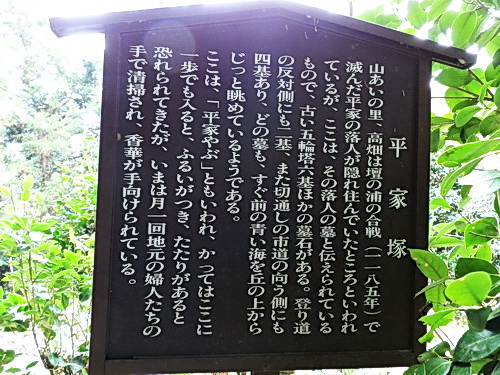 平家塚
山あいの里、高畑は壇の浦の合戦（一一八五年）で
滅んだ平家の落人が隠れ住んでいたところといわれ
ているが、ここは、その落人の墓と伝えられている
もので、古い五輪塔六基ほかの墓石がある。登り道
の反対側にも二基、また切通しの市道の向う側にも
四基あり、どの墓も、すぐ前の青い海を丘の上から
じっと眺めているようである。
ここは、「平家やぶ」ともいわれ、かつてはここに
一歩でも入ると、ふるいがつき、たたりがあると
恐れられてきたが、いまは月一回地元の婦人たちの
手で清掃され、香華が手向けられている。